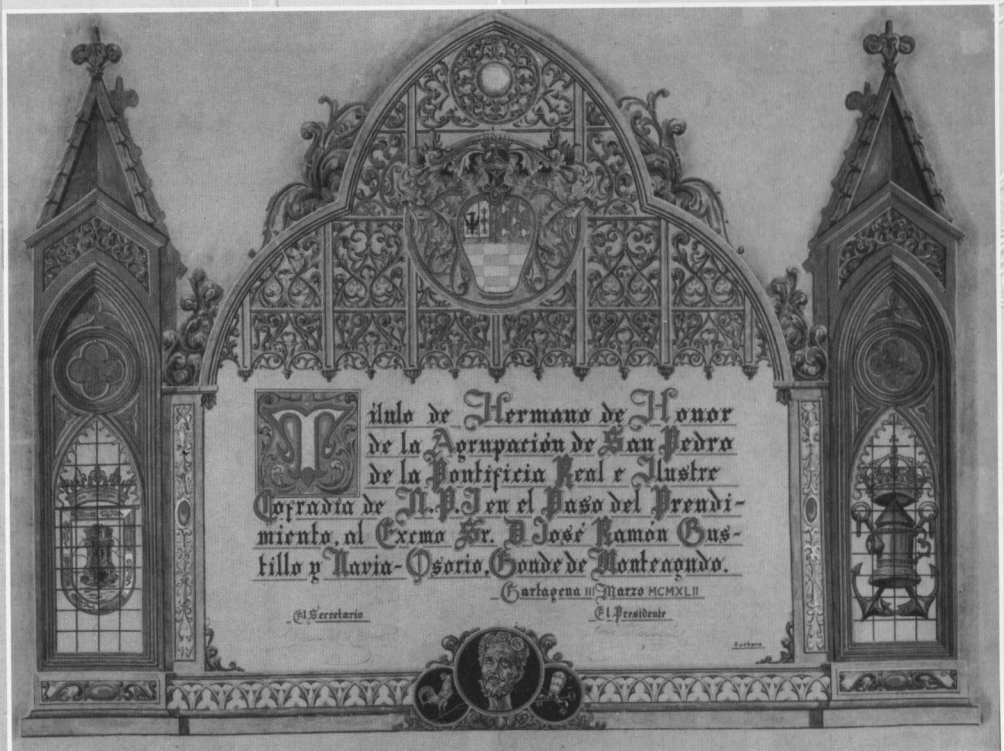 Titulo de Hermano de Honor
de la Agrupación de San Pedro
de la Pontificia Real e Ilustre
Cofradia de N.P.J en el Paso del Prendi-
miento, al Excmo Sr. D José Ramón Bus-
tillo y Navia-Osorio, Conde de Monteagudo.
Cartagena III Marzo MCMXLII
El Secretario
El Presidente